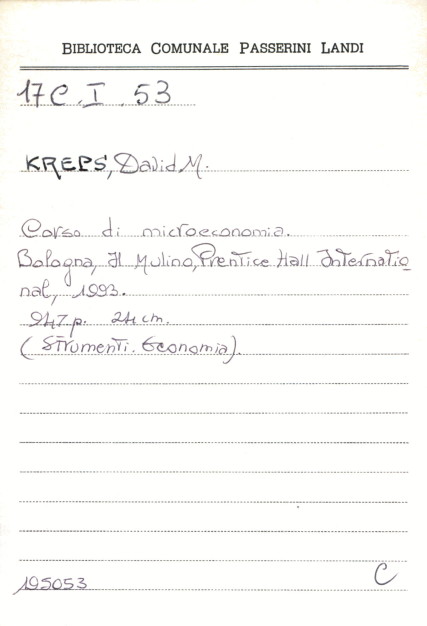 BIBLIOTECA COMUNALE PASSERINI LANDI
17 C. I. 53
KREPS, David M.
Corso di microeconomia.
Bologna, Il Mulino, Prentice Hall Internatio
nal, 1993.
947 p. 24 cm.
(Strumenti. Economia).
195053
C